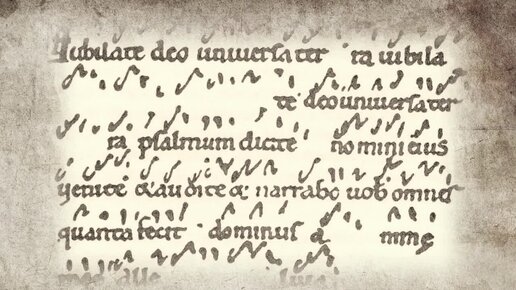 Iubilate deo universa ter ra iubila
te deo universa ter
ra psalmum dicite nomini eius
venite & audite & narrabo vob omnes
quanta fecit dominus a nimę
meę alle